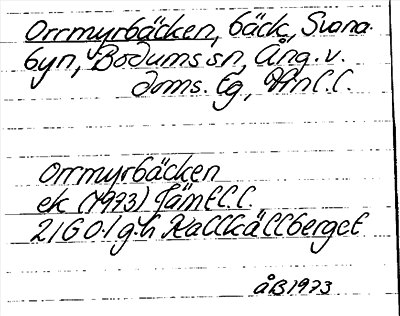 Orrmyrbäcken, bäck, Svana-
byn, Bodums sn, Ång. v.
doms. lg, Vnl.l.
Orrmyrbäcken
ek (1973) Jämtl.l.
21G 0-1 g-h Kallkällberget
ÅB 1973